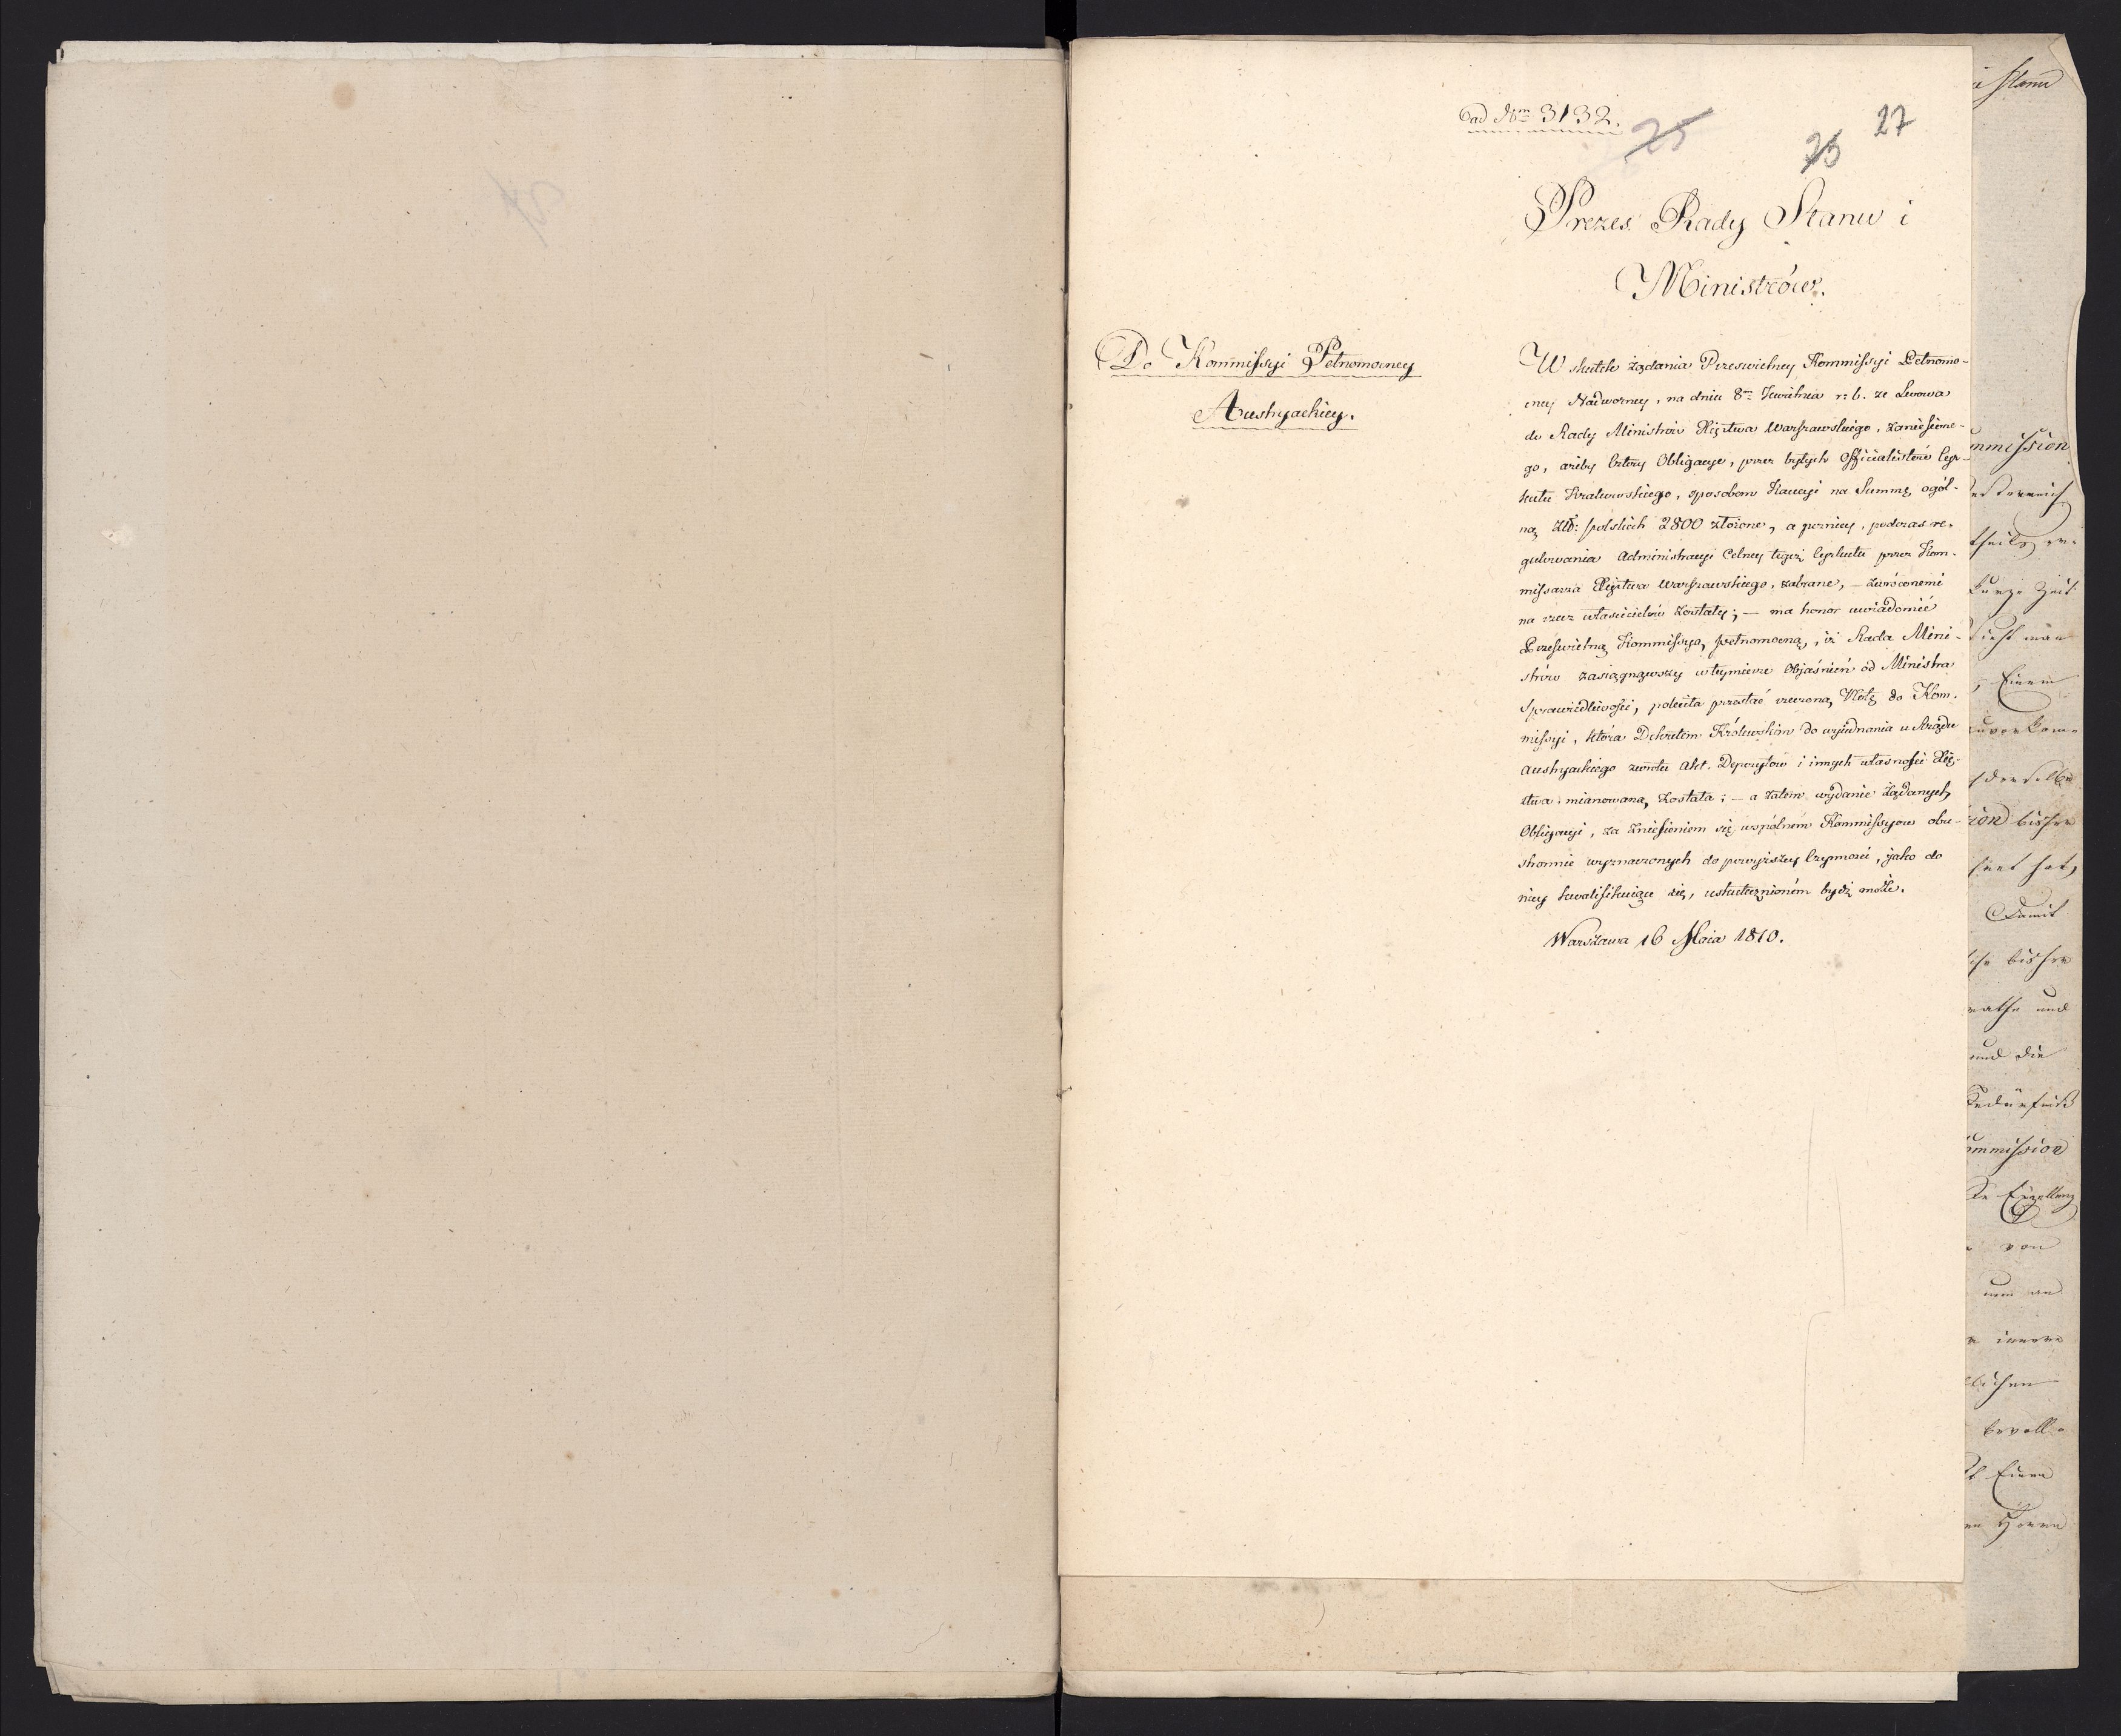 ad Nrm 3132.
25
25 27
Prezes Rady Stanu i
Ministrów.
Do Kommissyi Pełnomocney
Austryackiey.
W skutek żądania Prześwietney Kommissyi Pełnomo-
cney Nadworney, na dniu 8m Kwietnia r: b. ze Lwowa
do Rady Ministrów Xięstwa Warszawskiego, zaniesione-
go, ażeby cztery Obligacye, przez byłych Officialistów Cyr-
kułu Krakowskiego, sposobem Kaucyi na Summę ogól-
ną Złł: polskich 2800 złożone, a pozniey, podczas re-
gulowania Administracyi Celney tegoż Cyrkułu przez Kom-
missarza Xięstwa Warszawskiego, zabrane, – zwróconemi
na rzecz właścicielów zostały; – ma honor uwiadomić
Prześwietną Kommissyą pełnomocną, iż Rada Mini-
strów zasiągnąwszy w tey mierze Objaśnień od Ministra
Sprawiedliwości, poleciła przesłać rzeczoną Notę do Kom-
missyi, która Dekretem Królewskim do wyiednania u Rządu
Austryackiego zwrotu Akt. Depozytow i innych własności Xię-
stwa, mianowaną została; – a zatem wydanie żądanych
Obligacyi, za zniesieniem się wspólnem Kommissyow obu-
stronnie wyznaczonych do powyższey czynności, jako do
niey kwalifikuiące się, uskutecznioném bydź może.
Warszawa 16 Maia 1810.
Stanu
mmission
theils
kurze Zeit
Einem
derselbe
ion bisher
Damit
bisher
und
und die
Bedürfniß
ommission
Exzellenz
von
um an
innere
bevoll-
Einen
Herrn